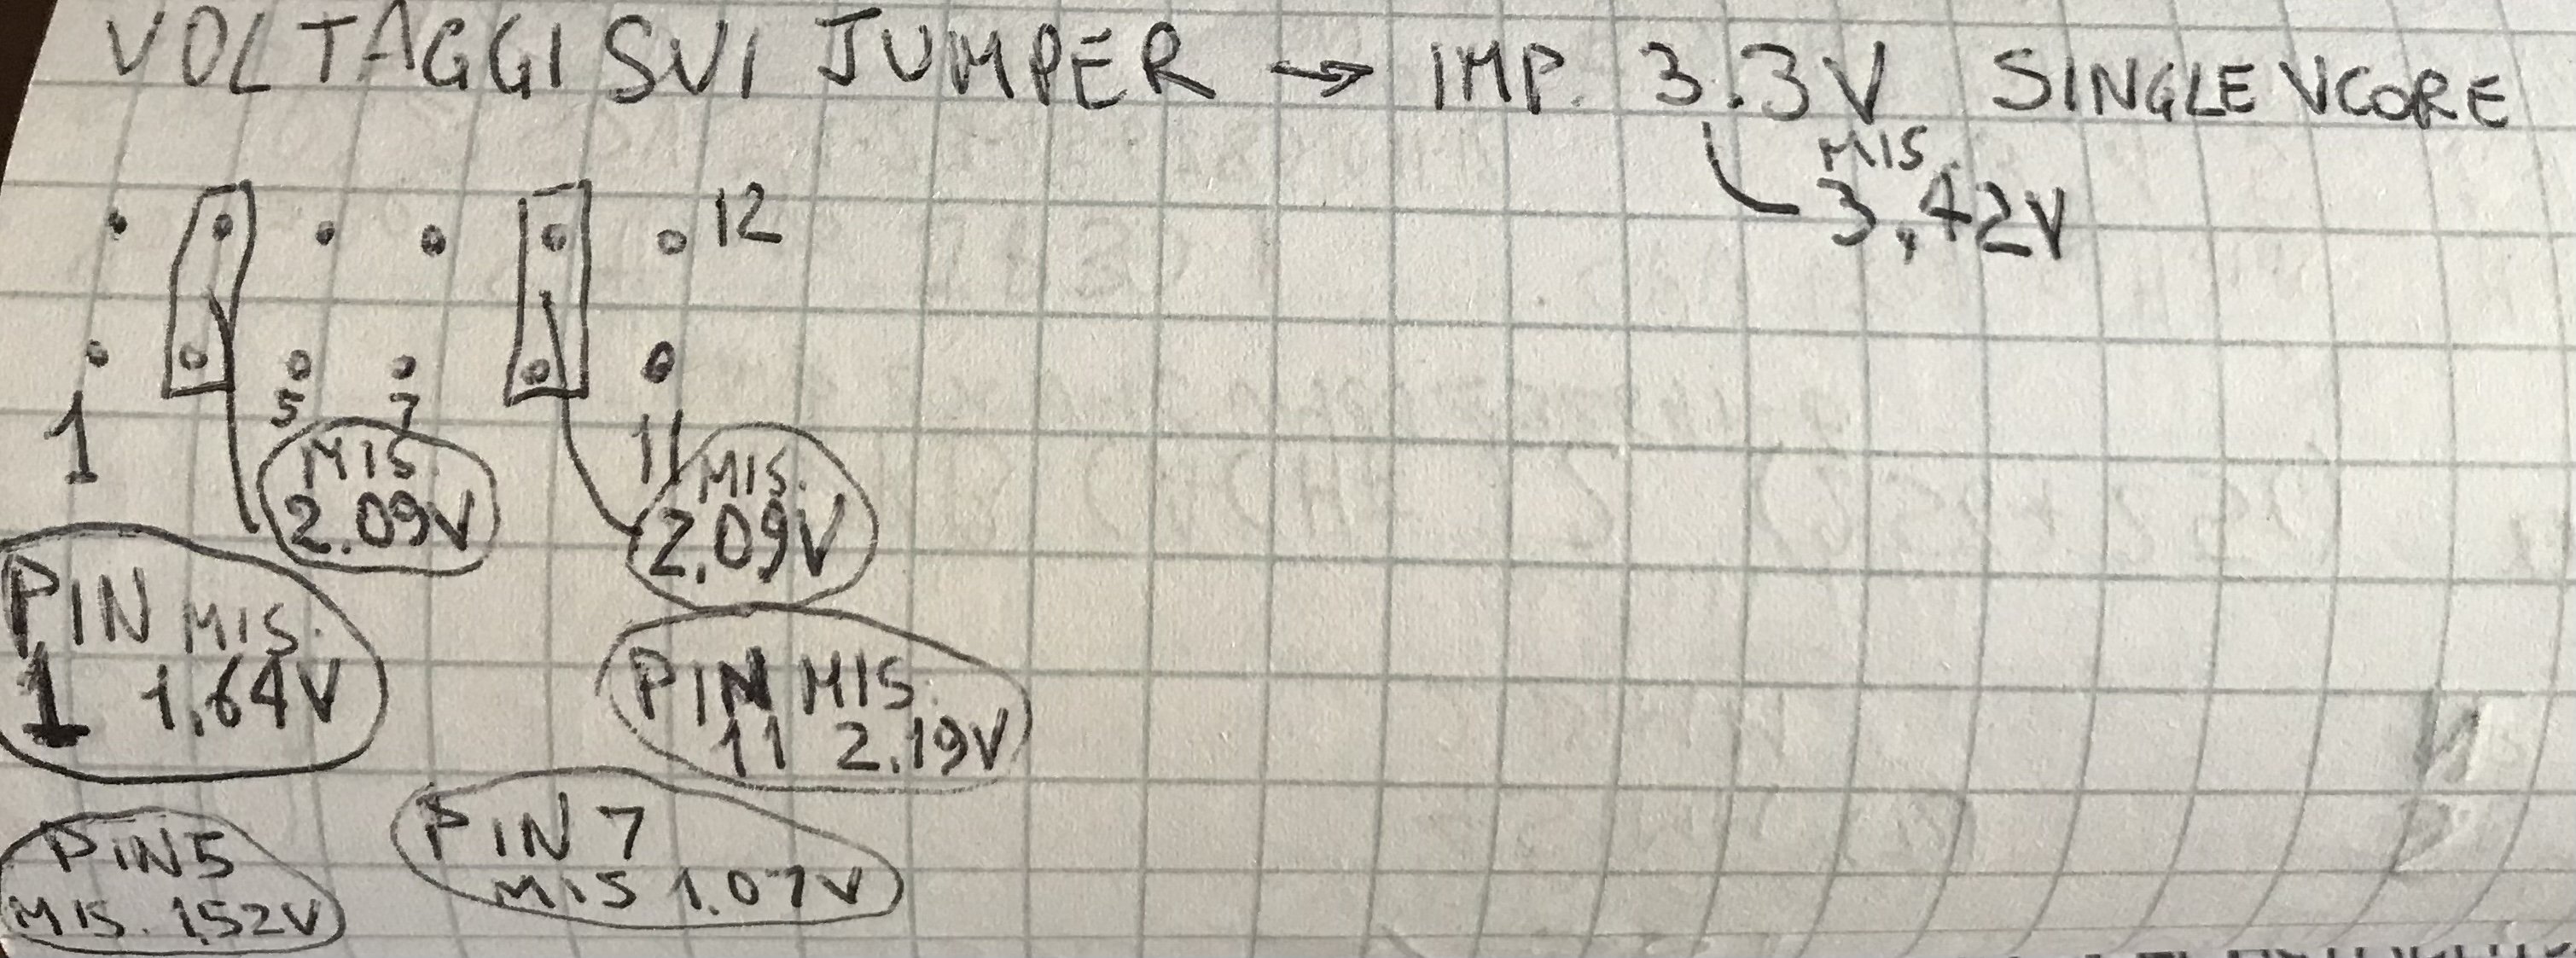 VOLTAGGI SUI JUMPER → IMP. 3.3V SINGLE VCORE
MIS.
3,42V
12
1
5 7
11
MIS
2.09V
MIS.
2.09V
PIN MIS.
1 1.64V
PIN MIS.
11 2.19V
PIN 5
MIS. 1,52V
PIN 7
MIS 1.07V